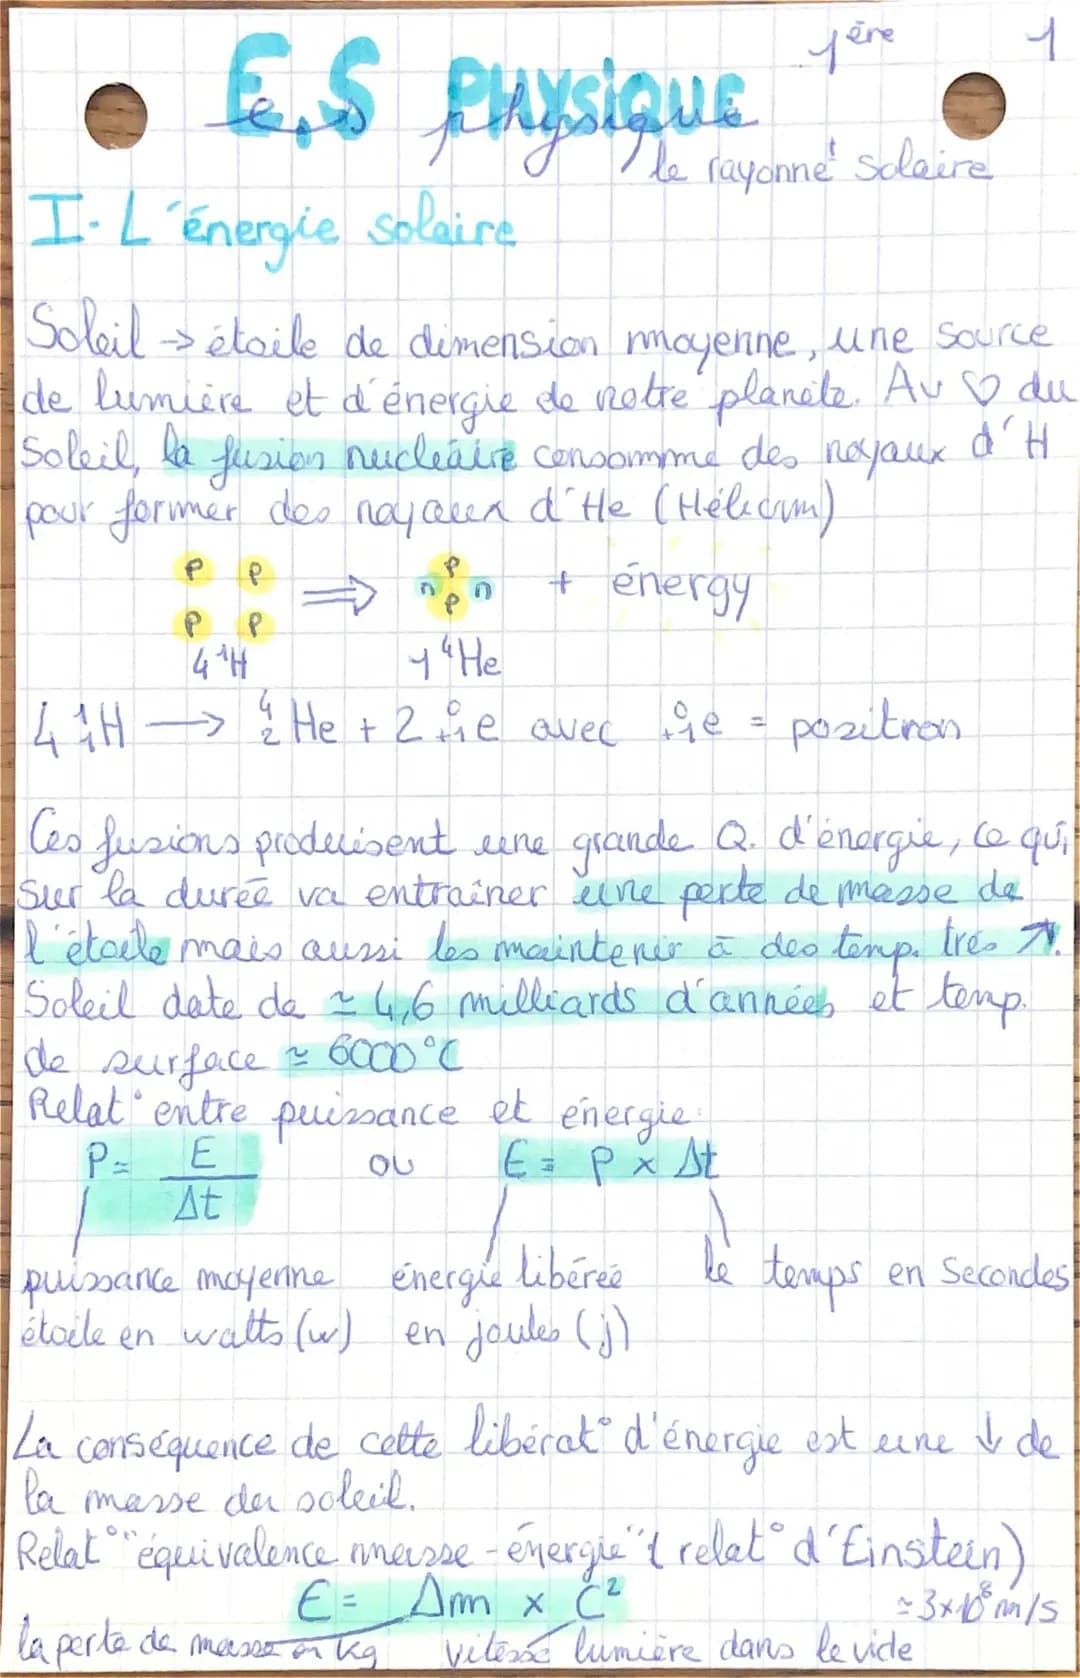 1ère 1
E.S PHYSIQUE
e.s physique
le rayonnet solaire
I- L'énergie solaire
Soleil → étoile de dimension moyenne, une source
de lumière et d'énergie de notre planète. Au ♡ du
Soleil, la fusion nucléaire consomme des noyaux d'H
pour former des noyaux d'He (Hélium)
P P ⇒ P n n P + énergy
P P
4 ¹H 1 ⁴He
4 ¹₁H → ⁴₂He + 2 ⁰₊₁e avec ⁰₊₁e = positron
Ces fusions produisent une grande Q. d'énergie, ce qui
sur la durée va entraîner une perte de masse de
l'étoile mais aussi les maintenir à des temp. très ↗.
Soleil date de ≃ 4,6 milliards d'années et temp.
de surface ≃ 6000°C
Relat° entre puissance et énergie:
P = E / Δt ou E = P x Δt
puissance moyenne énergie libérée le temps en Secondes
étoile en watts (w) en joules (j)
La conséquence de cette libérat° d'énergie est une ↓ de
la masse du soleil.
Relat° "équivalence masse-énergie" (relat° d'Einstein)
E = Δm x C² ≃ 3x10⁸ m/s
la perte de masse en kg vitesse lumière dans le vide